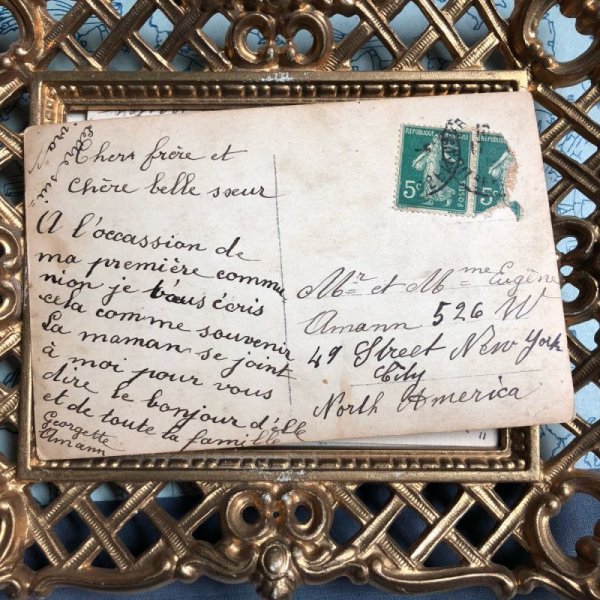 Chers frère et
Chère belle sœur
A l'occassion de
ma première commu
nion je vous écris
cela comme souvenir
La maman se joint
à moi pour vous
dire le bonjour d'elle
et de toute la famille
Georgette
Amann
Mr et Mme Eugène
Amann 526 W
49 Street New York
City
North America
5c
5c